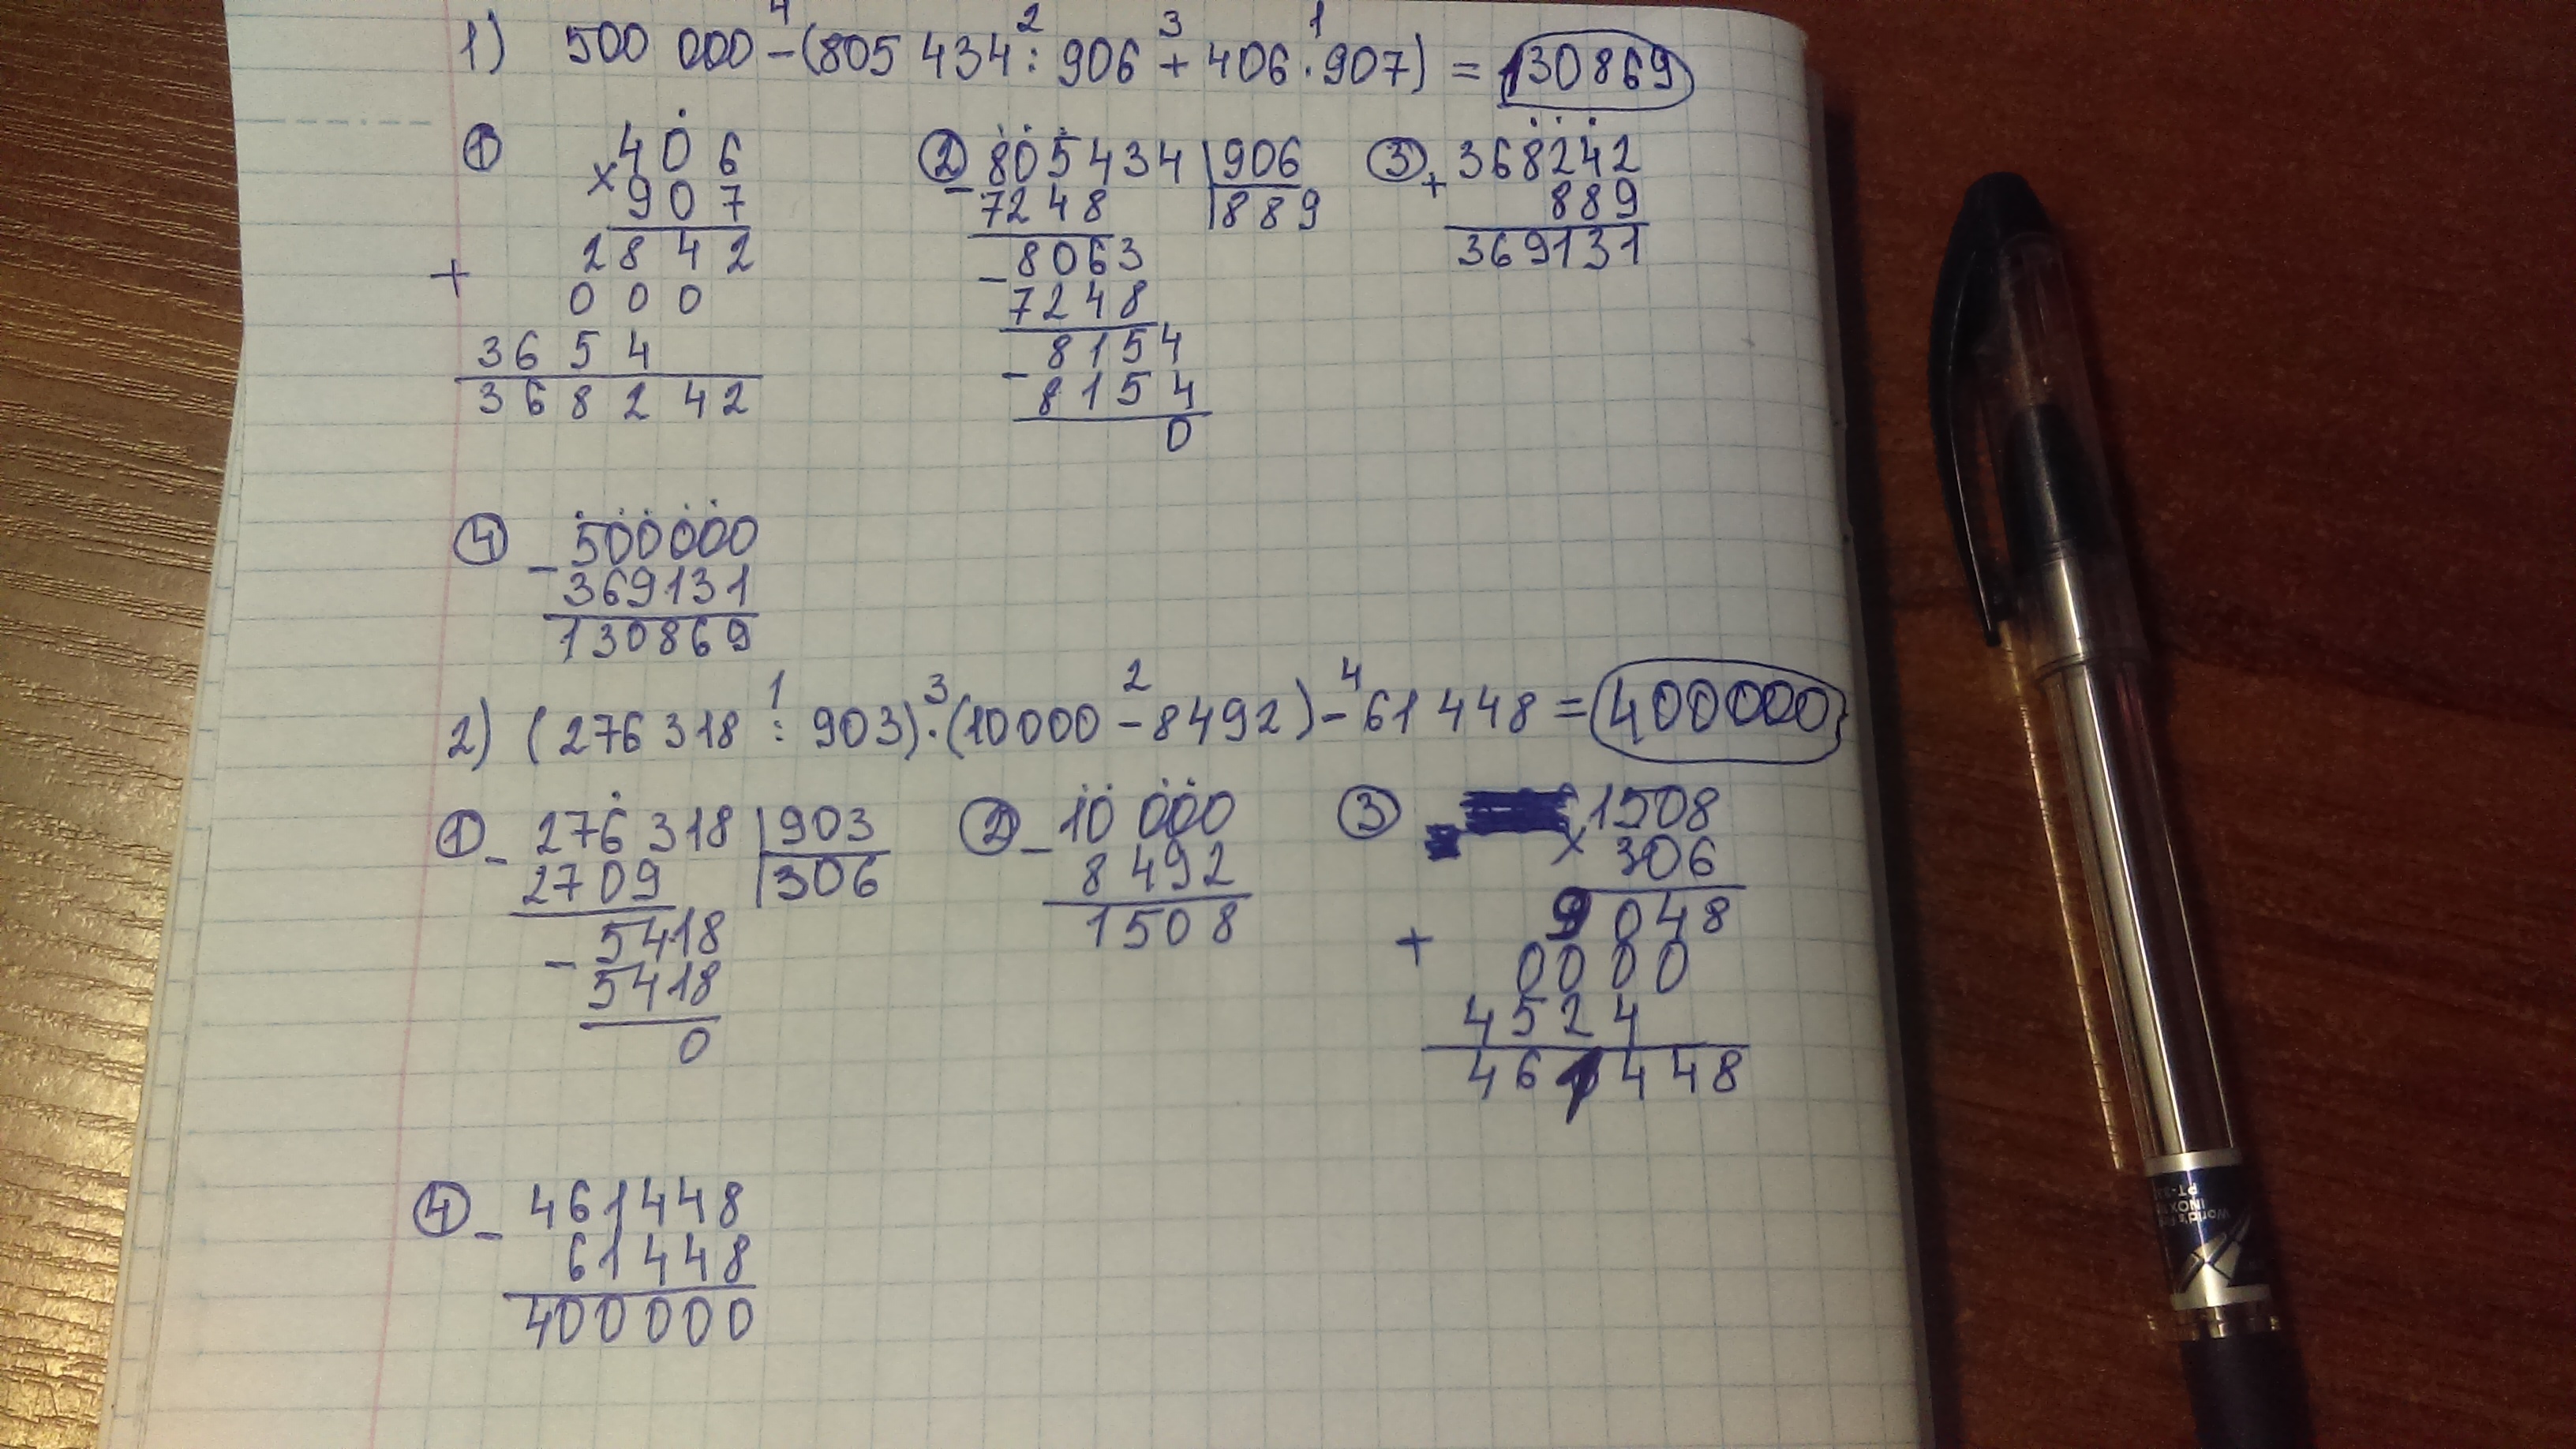 4 2 3 1
1) 500 000 - (805 434 : 906 + 406 · 907) = 130869
① 406
× 907
2842
+ 000
3654
368242
② - 805434 | 906
7248 | 889
- 8063
7248
- 8154
8154
0
③ + 368242
889
369131
④ - 500000
369131
130869
1 3 2 4
2) (276 318 : 903) · (10000 - 8492) - 61 448 = 400000
① - 276 318 | 903
2709 | 306
- 5418
5418
0
② - 10 000
8 492
1508
③ 1508
× 306
9048
+ 0000
4524
461448
④ - 461448
61448
400000
World's
INOX
PT-